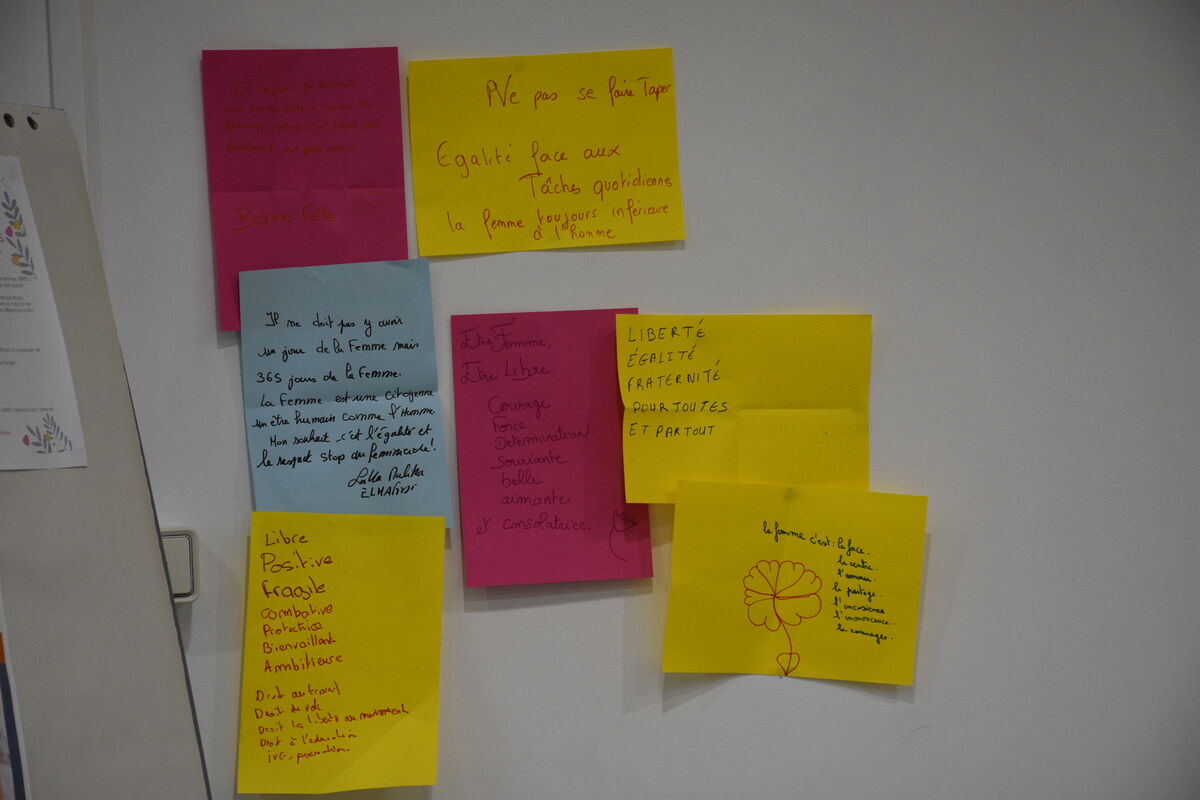 En ce jour je souhaite
une bonne fête à toutes les
femmes même s'il faut pas
forcément un jour précis
Bonne Fête
Ne pas se faire Taper
Egalité face aux
Tâches quotidienns
la femme toujours inférieure
à l'homme
Il ne doit pas y avoir
un jour de la Femme mais
365 jours de la Femme.
La Femme est une citoyenne
un être humain comme l'Homme
Mon souhait c'est l'égalité et
le respect stop au féminicide!
Etre Femme,
Etre Libre
Courage
Force
Determination
souriante
belle
aimante
et consolatrice.
LIBERTÉ
ÉGALITÉ
FRATERNITÉ
POUR TOUTES
ET PARTOUT
Libre
Positive
Fragile
Combative
Protectrice
Bienvaillante
Ambitieuse
Droit au travail
Droit de vote
Droit la liberté au mouvement
Droit à l'éducation
IVG
la femme c'est: la face.
le centre.
l'amour.
le partage.
l'innoncence.
le courages.